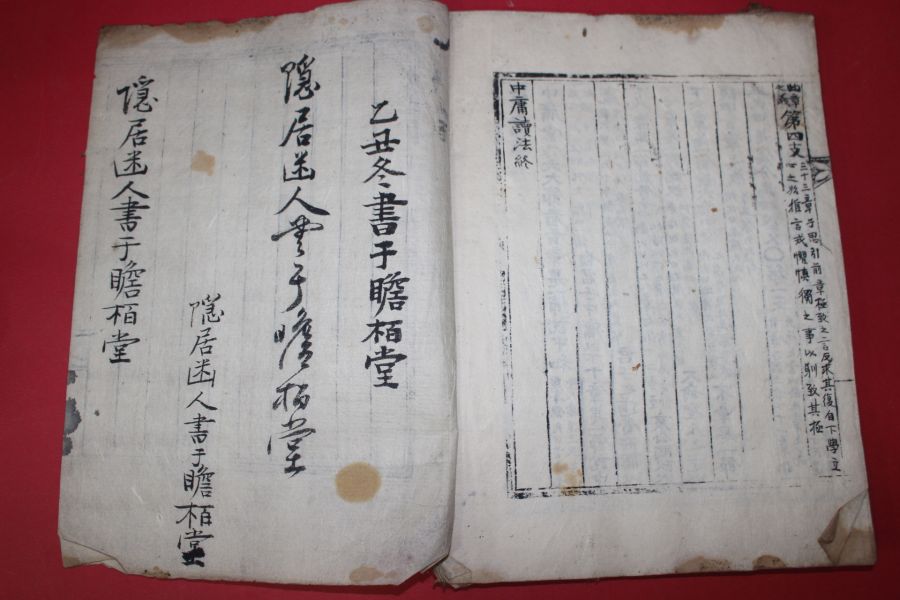 第四支
三十三章子思引前章極致之言反求其復自下學立
心之於推言戒懼慎獨之事以馴致其極
中庸讀法終
乙丑冬書于瞻栢堂
隱居迷人書于瞻栢堂
隱居迷人書于瞻栢堂
隱居迷人書于瞻栢堂